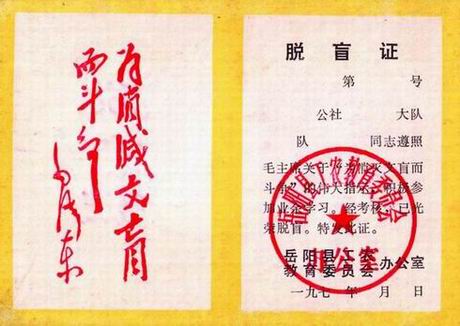 为消灭文盲
而斗争
毛泽东
脱盲证
第 号
公社 大队
队 同志遵照
毛主席关于“为消灭文盲而
斗争”的伟大指示，积极参
加业余学习。经考核，已光
荣脱盲。特发此证。
岳阳县工农
教育委员会办公室
一九七 年 月 日
岳阳县工农教育委员会
办公室